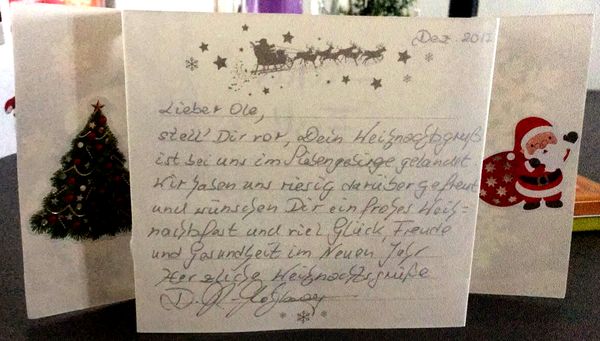 Dez. 2017
Lieber Ole,
stell' Dir vor, Dein Weihnachtsgruß
ist bei uns im Siebengebirge gelandet
Wir haben uns riesig darüber gefreut
und wünschen Dir ein frohes Weih=
nachtsfest und viel Glück, Freude
und Gesundheit im Neuen Jahr
Herzliche Weihnachtsgrüße